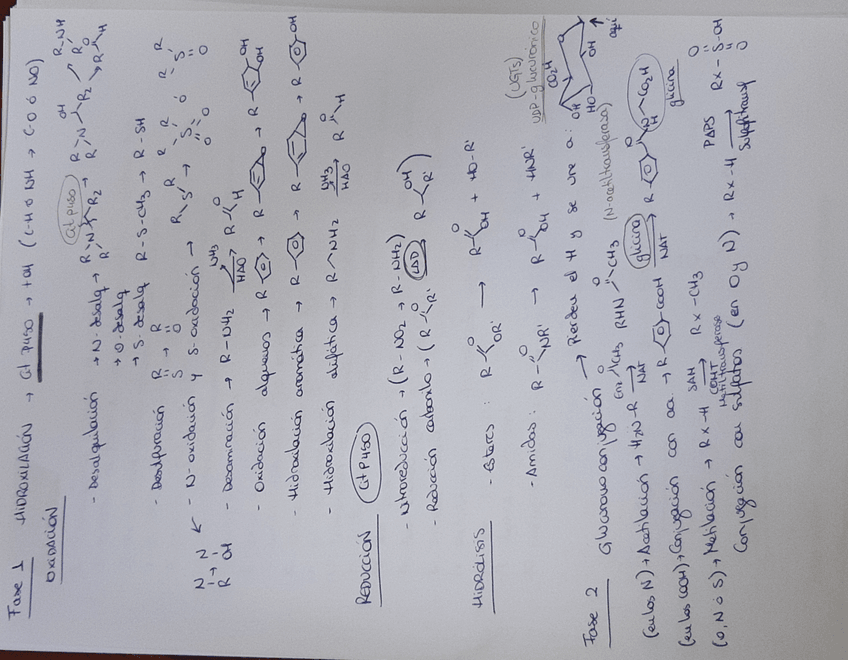 Fase 1 HIDROXILACIÓN → Cit P450 → +OH (C-H ó NH → C-O ó NO)
OXIDACIÓN
- Desalquilación → N-desalq → R-N-R2 → R-N-R2 R-NH
Cit P450
→ O-desalq
→ S-desalq R-S-CH3 → R-SH
- Desulfuración
- N-oxidación y S-oxidación →
- Desaminación → R-NH2 NH3 HAO R H O
- Oxidación alquenos → R → R → R OH OH
- Hidroxilación aromática → R → R → R OH
- Hidroxilación alifática → R NH2 NH3 HAO R H O
REDUCCIÓN Cit P450
- Nitroreducción → (R-NO2 → R-NH2)
- Reducción carbonilo → (R R' O LAD R R' OH)
HIDRÓLISIS - Esteres : R OR' O → R OH O + HO-R'
- Amidas : R NR' O → R OH O + HNR'
Fase 2 Glucuronoconjugación → Pierden el H y se une a :
(UGTs)
UDP-glucurónico
CO2H OH HO OH
aquí
(en los N) → Acetilación → H2N-R NAT RHN CH3 O (N-acetiltransferasa)
(en los COOH) → Conjugación con aa → R COOH glicina NAT R O N H CO2H
glicina
(O, N ó S) → Metilación → Rx-H SAH COMT Rx-CH3
Metiltransferasa
Conjugación con sulfatos (en O y N) → Rx-H PAPS Sulfotransf Rx-S-OH O O